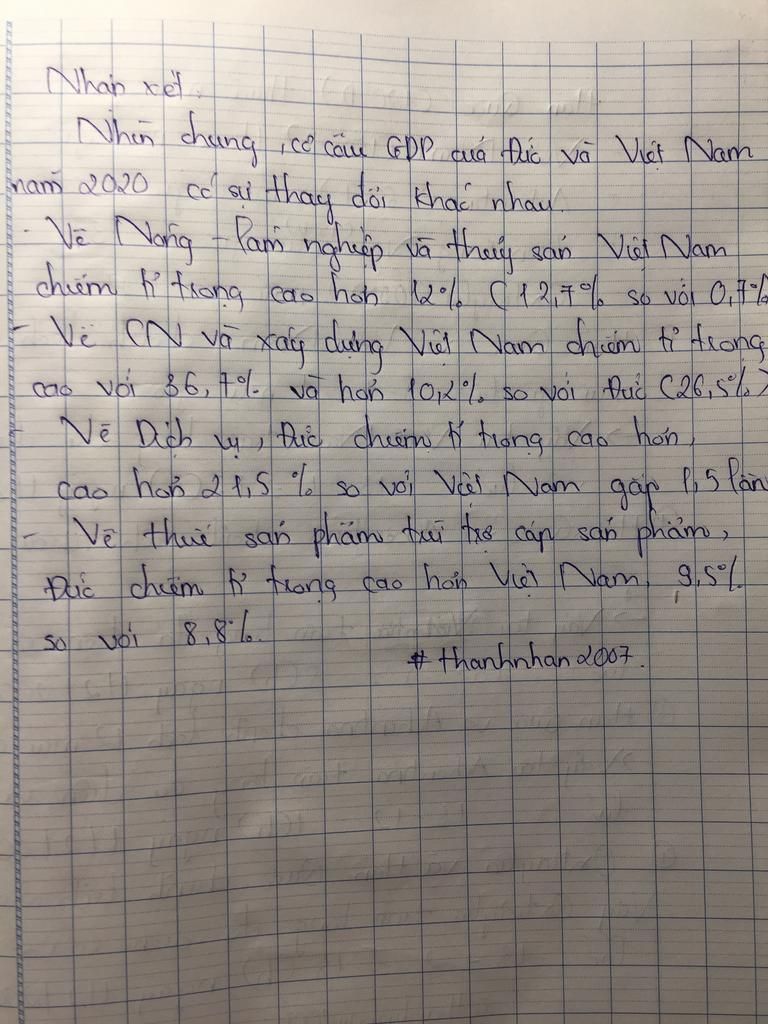 Nhận xét:
Nhìn chung, cơ cấu GDP quả Đức và Việt Nam
năm 2020 có sự thay đổi khác nhau.
- Về Nông - Lâm nghiệp và thuỷ sản Việt Nam
chiếm tỉ trọng cao hơn 12% (12,7% so với 0,7%
- Về CN và xây dựng Việt Nam chiếm tỉ trọng
cao với 36,7% và hơn 10,2% so với Đức (26,5%)
- Về Dịch vụ, Đức chiếm tỉ trọng cao hơn,
cao hơn 21,5 % so với Việt Nam gấp 1,5 lần
- Về thuế sản phẩm trừi trợ cấp sản phẩm,
Đức chiếm tỉ trọng cao hơn Việt Nam, 9,5%
so với 8,8%.
# thanhnhan2007.